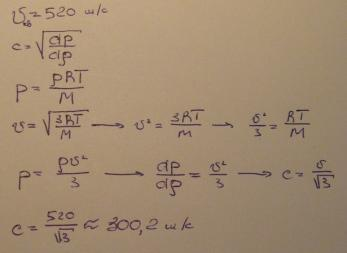 υкв = 520 м/с
c = √(dp/dρ)
p = ρRT/M
υ = √(3RT/M) → υ² = 3RT/M → υ²/3 = RT/M
p = ρυ²/3 → dp/dρ = υ²/3 → c = υ/√3
c = 520/√3 ≈ 300,2 м/с